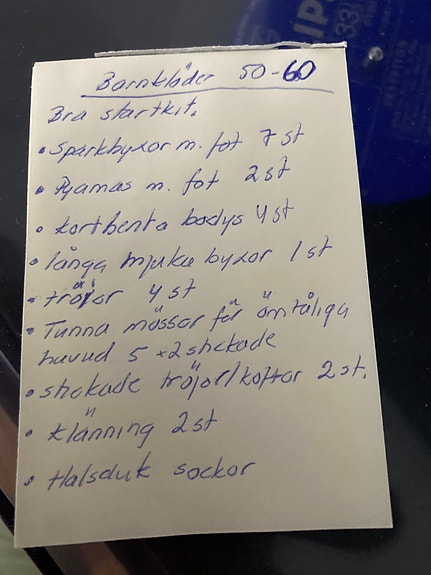 Barnkläder 50-60
Bra startkit.
• Sparkbyxor m. fot 7 st
• Pyamas m. fot 2 st
• kortbenta bodys 4 st
• långa mjuka byxor 1 st
• tröjor 4 st
• Tunna mössor för ömtåliga
huvud 5 + 2 stickade
• stickade tröjor/koftor 2 st.
• klänning 2 st
• Halsduk sockor